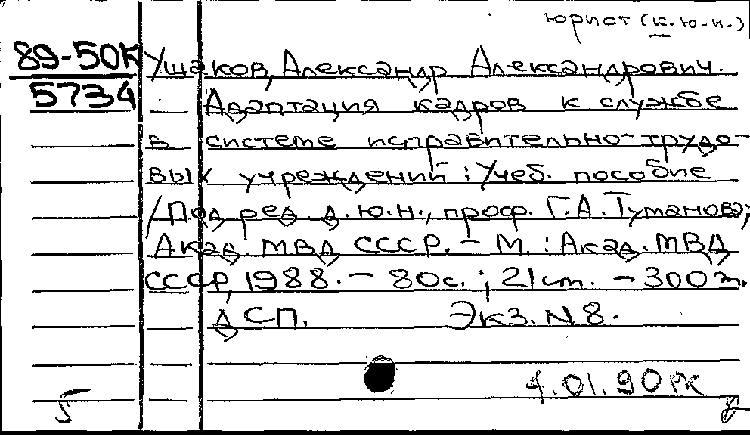 юрист (к.ю.н.)
89-50К Ушаков, Александр Александрович.
5734 — Адаптация кадров к службе
в системе исправительно-трудо-
вых учреждений : Учеб. пособие
/Под ред. д.ю.н., проф. Г.А. Туманова;
Акад. МВД СССР. – М. : Акад. МВД
СССР, 1988. – 80с. ; 21см. – 300
ДСП. Экз. N 8.
4.01.90
5